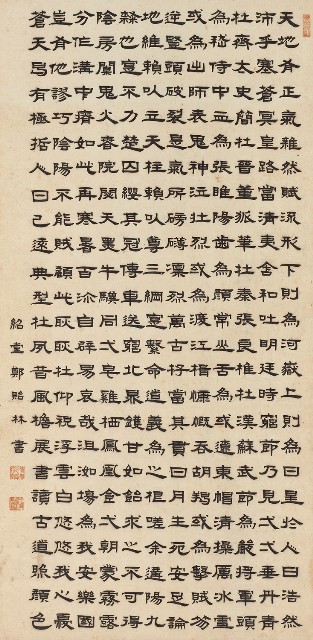 天地有正氣雜然賦流形下則為河嶽上則為日星於人曰浩然
沛乎塞蒼冥皇路當清夷含和吐明廷時窮節乃見弌弌垂丹青
在齊太史簡在晉董狐筆在秦張良椎在漢蘇武節為嚴將軍頭
為嵇侍中血為張睢陽齒為顏常山舌或為遼東帽清操厲冰雪
或為出師表鬼神泣壯烈或為渡江楫慷慨吞胡羯或為擊賊笏
逆豎頭破裂是氣所磅礴凜烈萬古存當其貫日月生死安足論
地維賴以立天柱賴以尊三綱實繫命道義為之根嗟余遘陽九
隸也實不力楚囚纓其冠傳車送窮北鼎鑊甘如飴求之不可得
陰房闃鬼火春院閟天黑牛驥同弌皁雞棲鳳凰食弌朝蒙霧露
分作溝中瘠如此再寒暑百沴自辟易哀哉沮洳場為我安樂國
豈有他謬巧陰陽不能賊顧此耿耿在仰視浮雲白悠悠我心悲
蒼天曷有極哲人日已遠典型在夙昔風檐展書讀古道照顏色
紹堂鄭貽林書